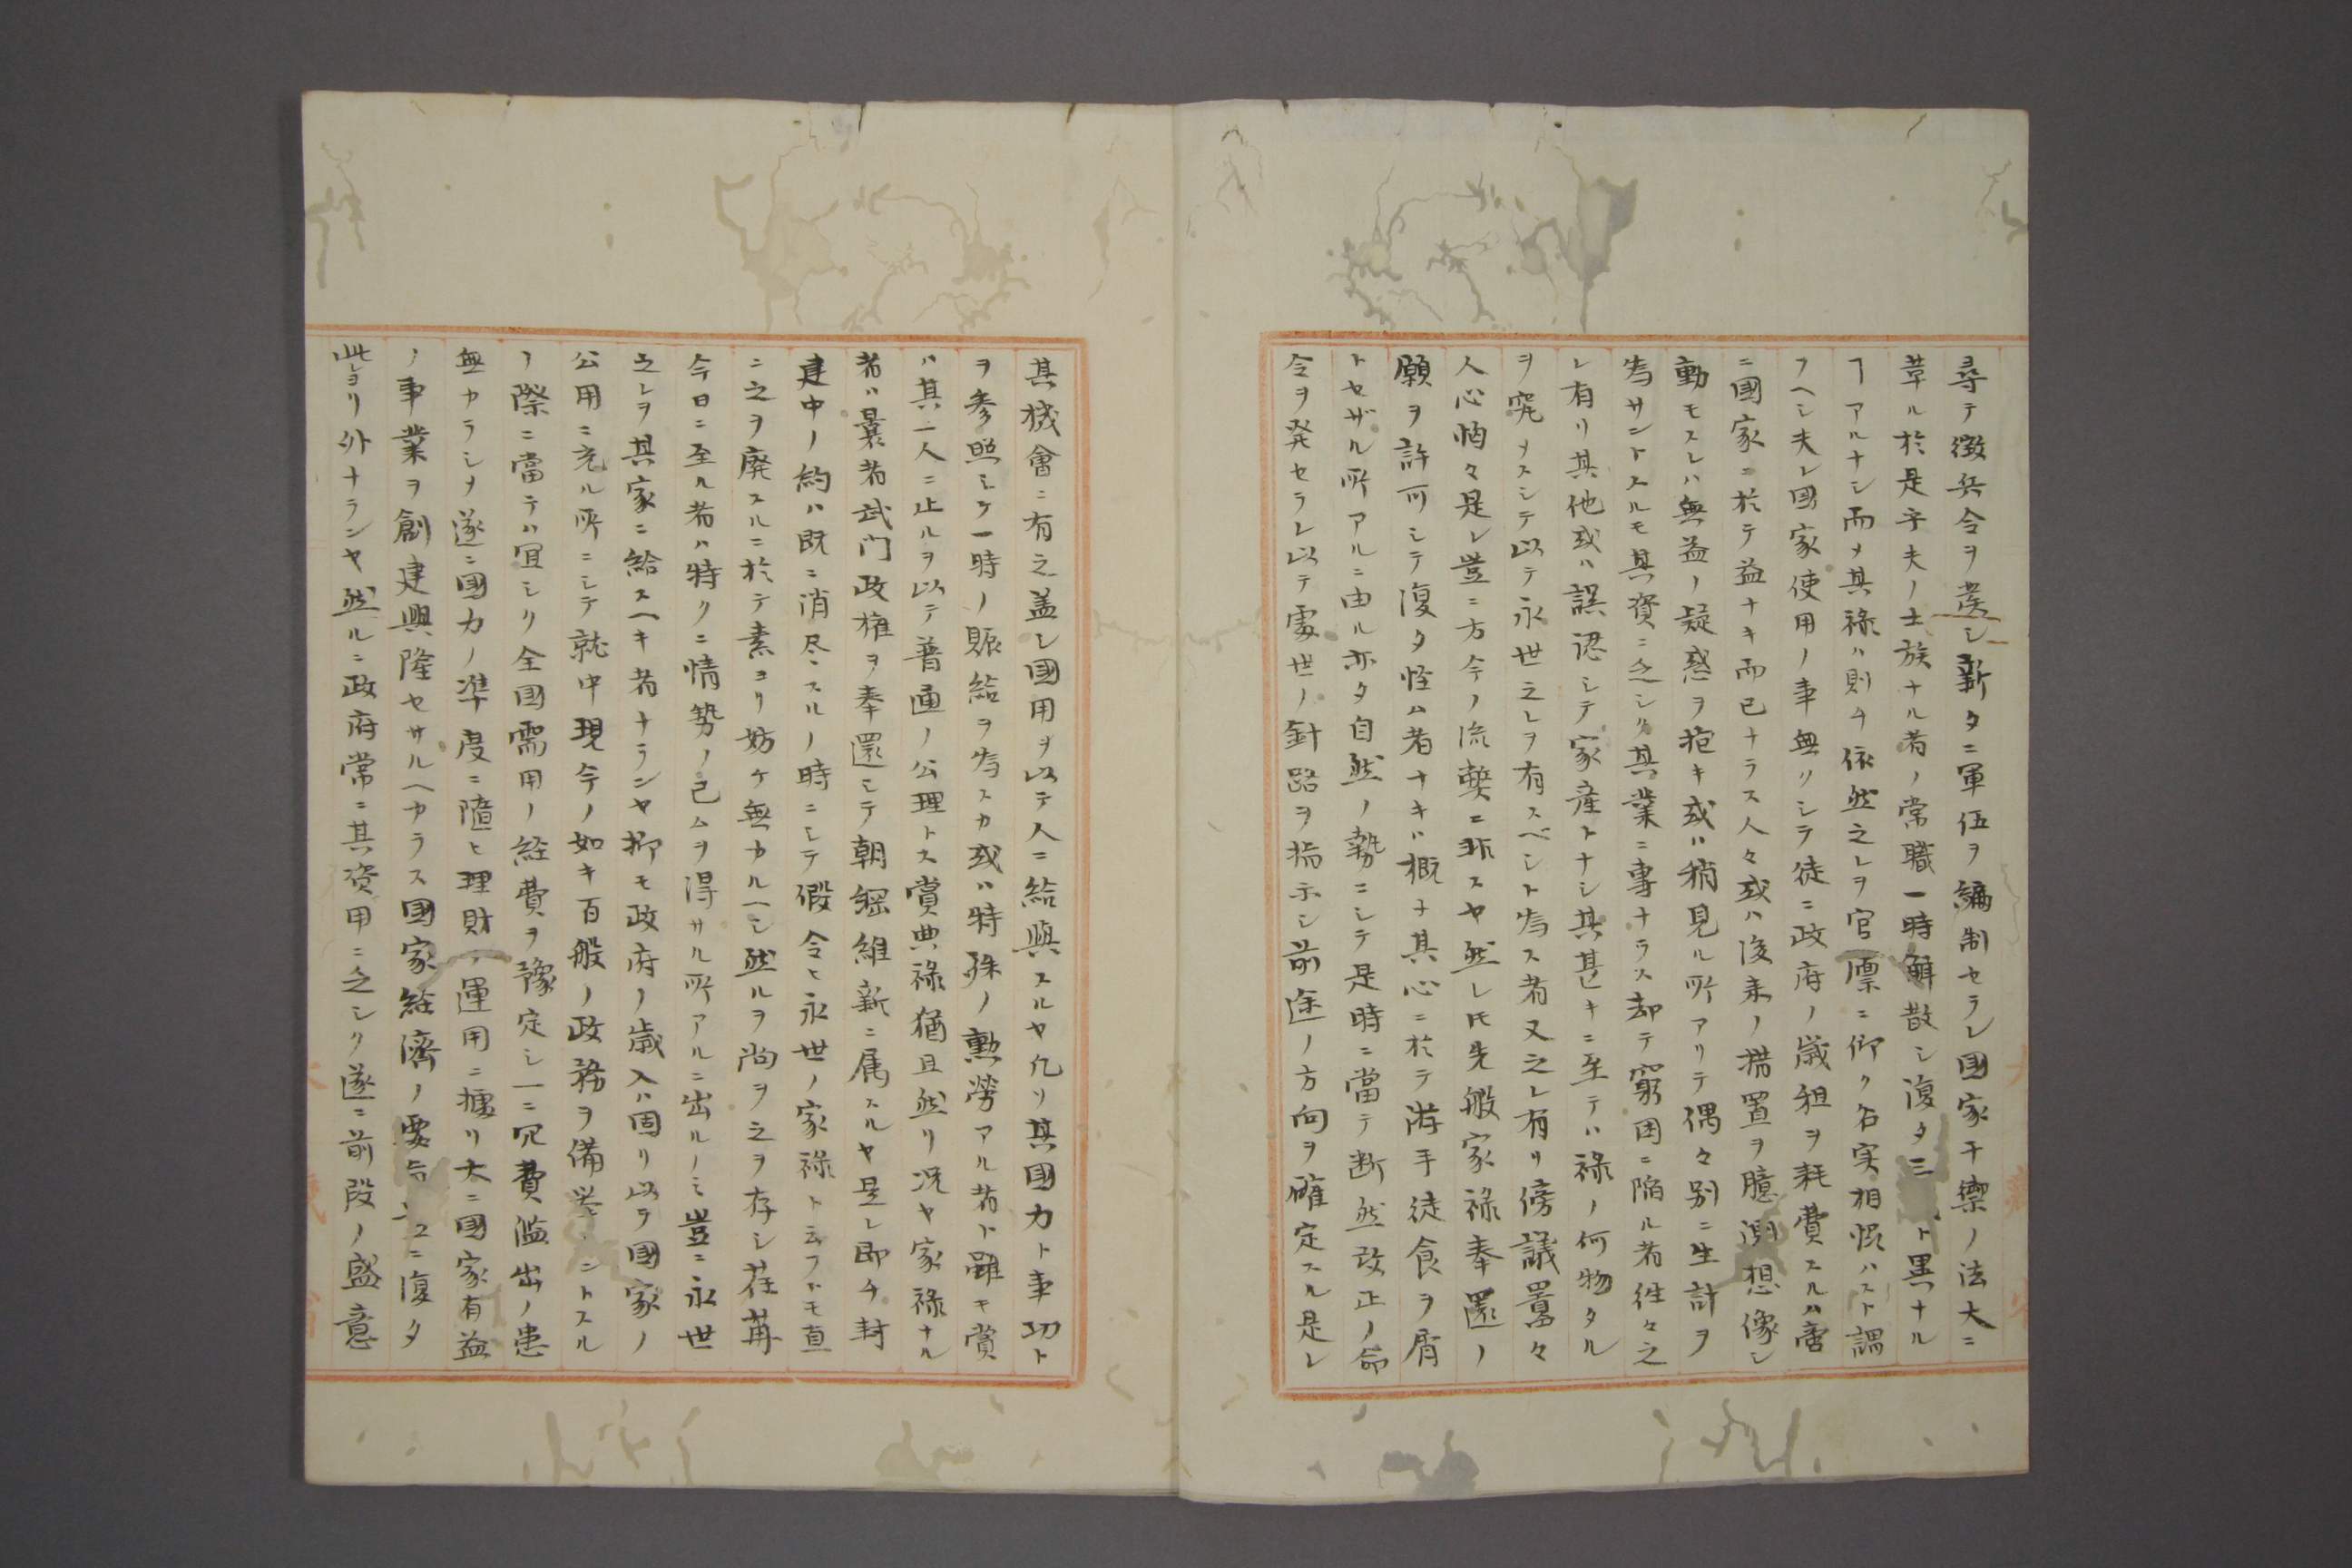 尋テ徴兵令ヲ発シ新タニ軍伍ヲ編制セラレ国家干禦ノ法大ニ
革ル於是乎夫ノ士族ナル者ノ常職一時解散シ復タ三ト異ナル
ヿアルナシ而メ其禄ハ則チ依然之レヲ官廩ニ仰ク名実相恊ハスト謂
フヘシ夫レ國家使用ノ事無クシテ徒ニ政府ノ歳租ヲ耗費スルハ啻
ニ國家ニ於テ益ナキ而已ナラス人々或ハ後来ノ措置ヲ臆測想像シ
動モスレハ無益ノ疑惑ヲ抱キ或ハ稍見ル所アリテ偶々別ニ生計ヲ
為サントスルモ其資ニ乏シク其業ニ專ナラス却テ窮困ニ陥ル者徃々之
レ有リ其他或ハ誤認シテ家産トナシ其甚キニ至テハ禄ノ何物タル
ヲ究メスシテ以テ永世之レヲ有スベシト為ス者又之レ有リ傍議囂々
人心恟々是レ豈ニ方今ノ流弊ニ非スヤ然レ𪜈先般家禄奉還ノ
願ヲ許可シテ復タ怪ム者ナキハ概子其心ニ於テ游手徒食ヲ屑
トセザル所アルニ由ル亦タ自然ノ勢ニシテ是時ニ當テ断然改正ノ命
令ヲ発セラレ以テ處世ノ針路ヲ指示シ前途ノ方向ヲ確定スル是レ
其機會ニ有之蓋シ國用ヲ以テ人ニ給與スルヤ凡ソ其國力ト事功ト
ヲ参照シケ一時ノ賑給ヲ為スカ或ハ特殊ノ勲勞アル者ト雖モ賞
ハ其一人ニ止ルヲ以テ普通ノ公理トス賞典禄猶且然リ况ヤ家禄ナル
者ハ曩者武门政権ヲ奉還シテ朝綱維新ニ属スルヤ是レ即チ封
建中ノ約ハ既ニ消尽スルノ時ニシテ假令ヒ永世ノ家禄ト云フトモ直
ニ之ヲ廃スルニ於テ素ヨリ妨ケ無カルヘシ然ルヲ尚ヲ之ヲ存シ荏苒
今日ニ至ル者ハ特リニ情勢ノ已ムヲ得サル所アルニ出ルノミ豈ニ永世
之レヲ其家ニ給スヘキ者ナランヤ抑モ政府ノ歳入ハ固リ以テ國家ノ
公用ニ充ル所ニシテ就中現今ノ如キ百般ノ政務ヲ備挙ントスル
ノ際ニ當テハ冝シク全国需用ノ経費ヲ豫定シ一ニ冗費濫出ノ患
無カラシメ遂ニ國力ノ準度ニ隨ヒ理財ノ運用ニ據リ大ニ國家有益
ノ事業ヲ創建興隆セサルヘカラス國家経濟ノ要旨ニ復タ
此ヨリ外ナランヤ然ルニ政府常ニ其資用ニ乏シク遂ニ前段ノ盛意